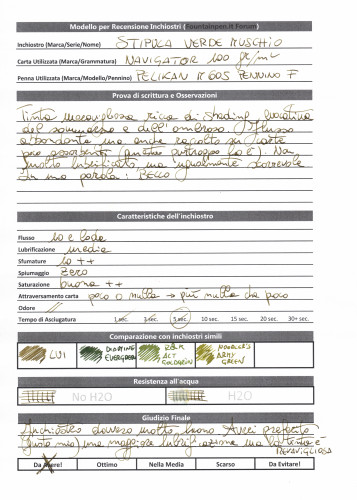 Modello per Recensione Inchiostri (Fountainpen.it Forum)
Inchiostro (Marca/Serie/Nome) STIPULA VERDE MUSCHIO
Carta Utilizzata (Marca/Grammatura) NAVIGATOR 100 gr/m²
Penna Utilizzata (Marca/Modello/Pennino) PELIKAN M605 PENNINO F
Prova di scrittura e Osservazioni
Tinta meravigliosa ricca di shading, evocativa
del sommerso e dell'ombroso. Flusso
abbondante ma anche raccolto su carte
più assorbenti (questa purtroppo lo è). Non
molto lubrificato ma ugualmente scorrevole
In una parola: BELLO
Caratteristiche dell'inchiostro
Flusso 10 e lode
Lubrificazione media
Sfumature 10 ++
Spiumaggio Zero
Saturazione buona ++
Attraversamento carta poco o nulla → più nulla che poco
Odore
Tempo di Asciugatura 1 sec. 3 sec. 5 sec. 10 sec. 15 sec. 20 sec. 30+ sec.
Comparazione con inchiostri simili
LUI DIAMINE EVERGREEN R&K ALT GOLDGRÜN NOODLER'S ARMY GREEN
Resistenza all'acqua
No H2O H2O
Giudizio Finale
Inchiostro davvero molto buono. Avrei preferito
(gusto mio) una maggiore lubrificazione ma la tinta è
MERAVIGLIOSA
Da Avere! Ottimo Nella Media Scarso Da Evitare!